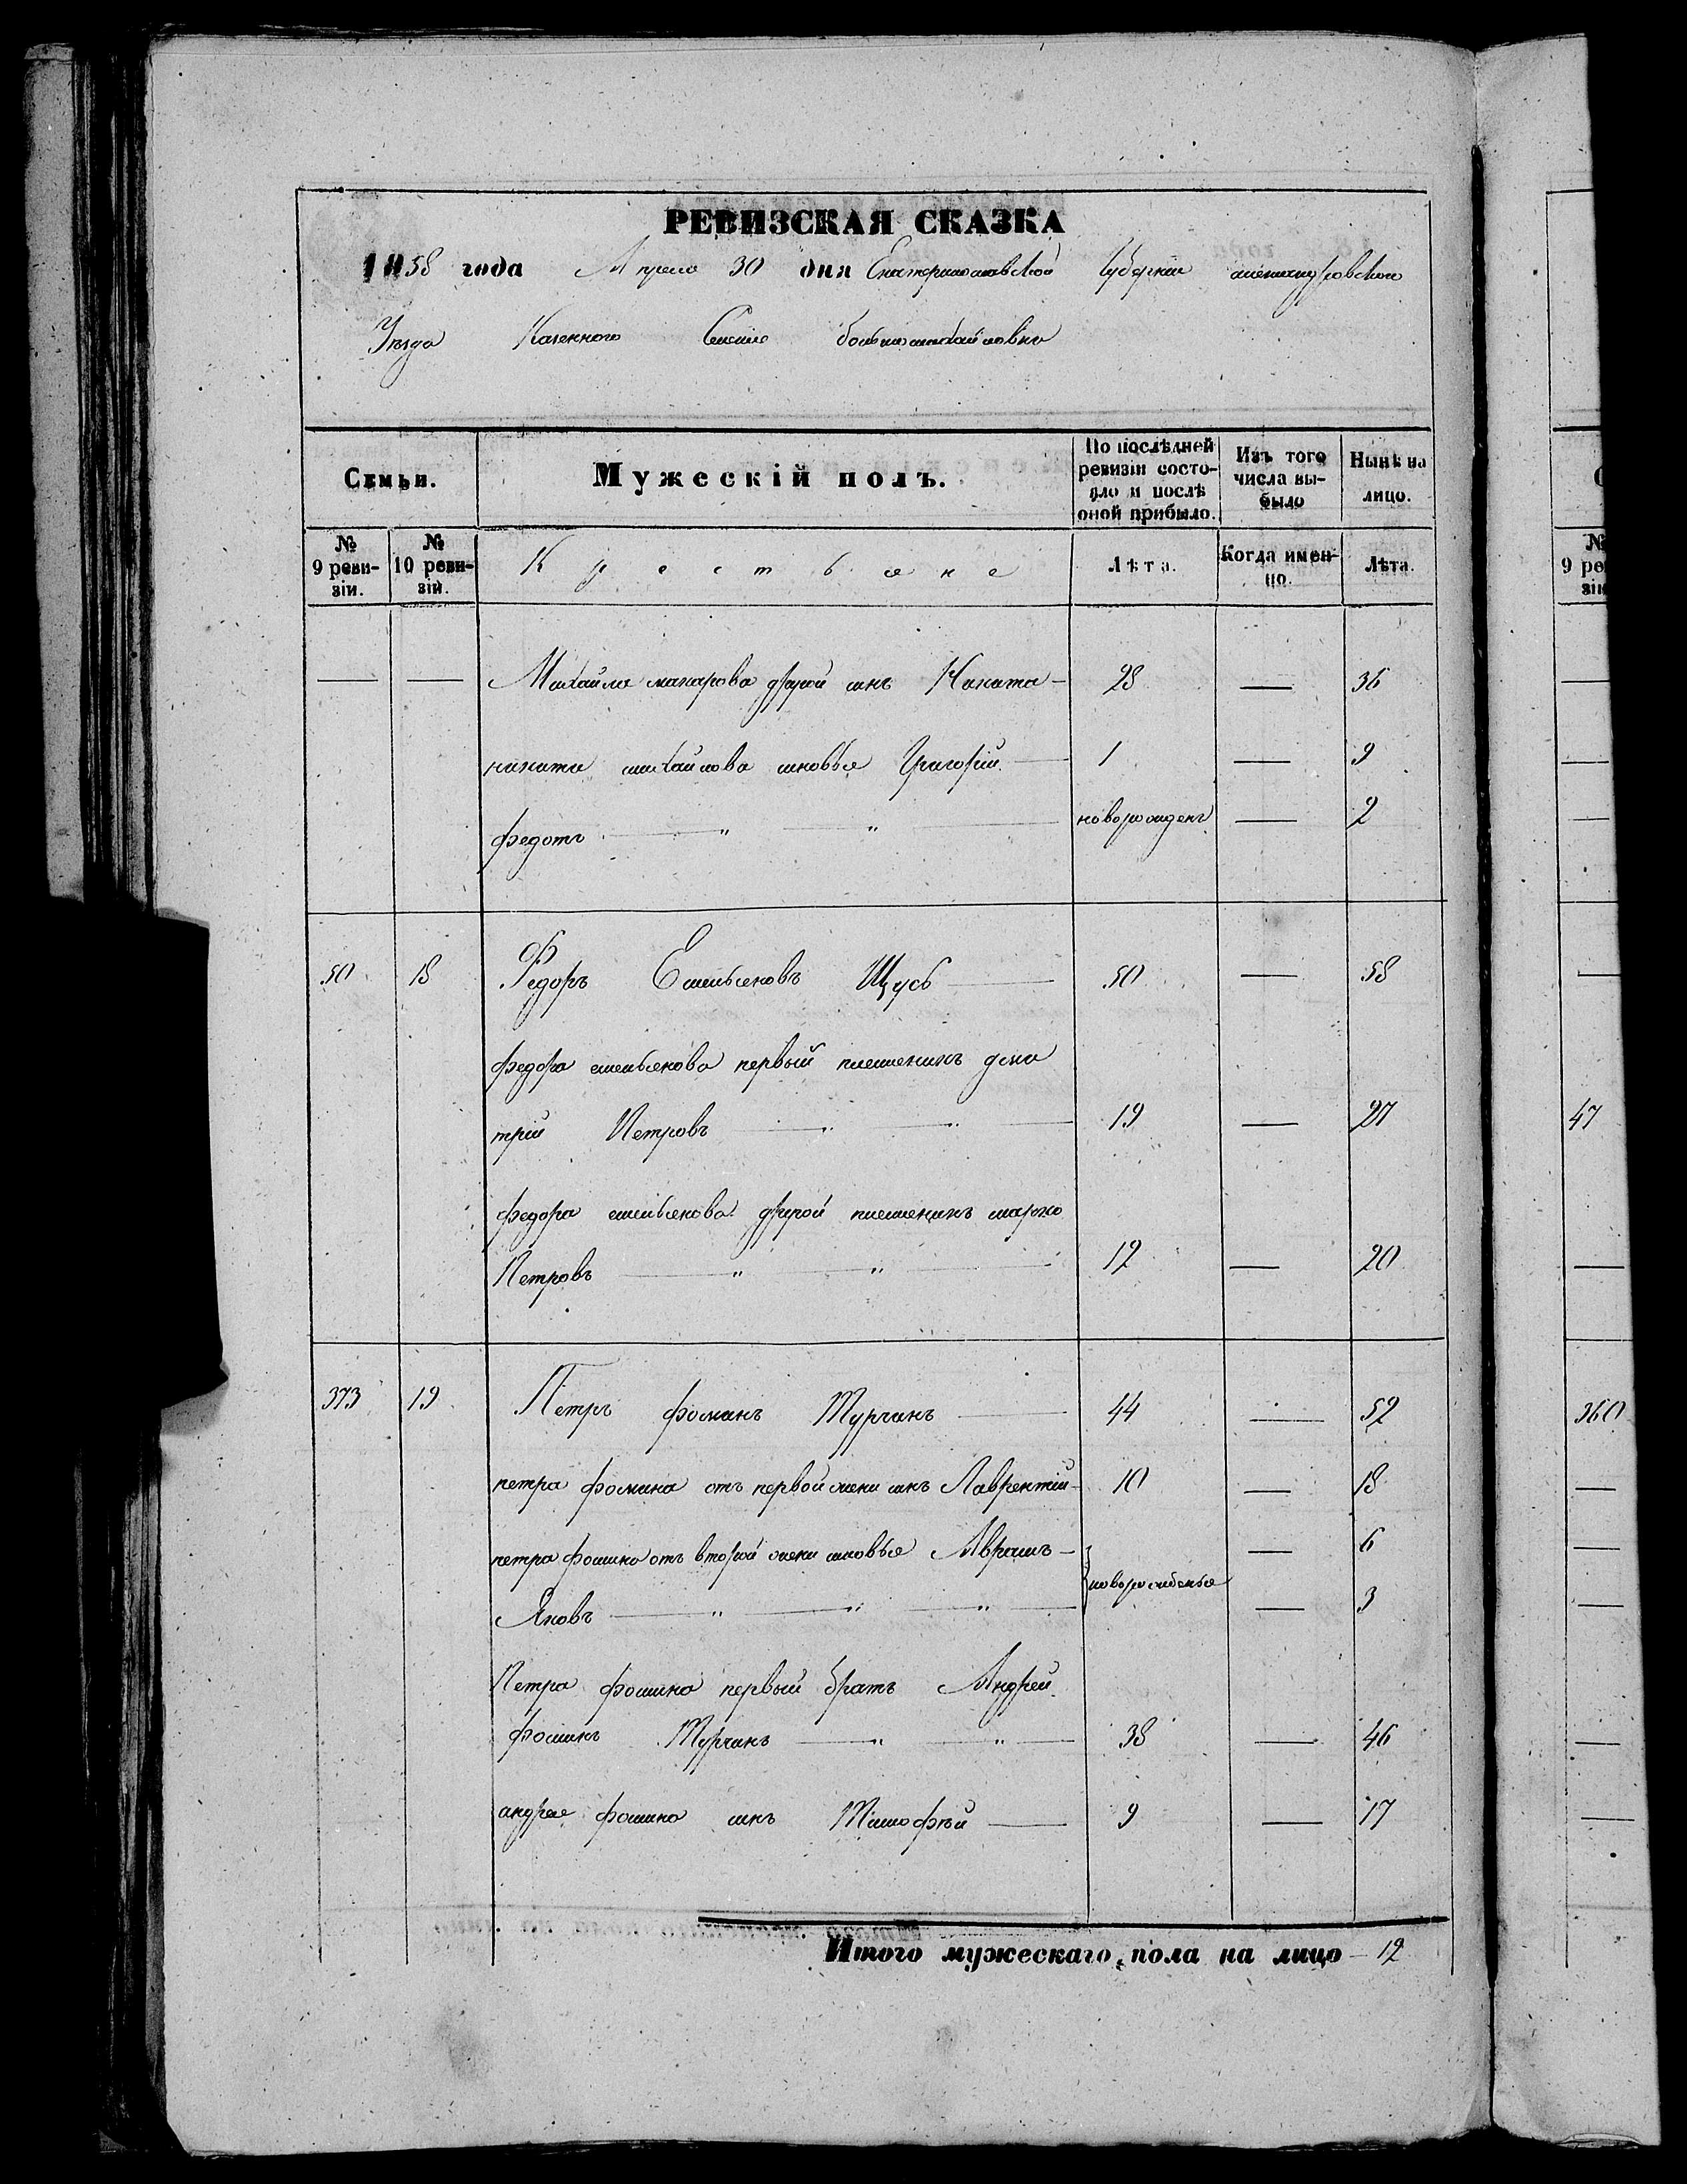 РЕВИЗСКАЯ СКАЗКА
1858 года Апреля 30 дня Екатеринославской Губернии александровского
Уезда Казенного Селения большемихайловки
Семьи. Мужескій полъ. По послѣдней ревизіи состояло и послѣ оной прибыло. Изъ того числа выбыло Нынѣ на лицо.
№ 9 ревизіи. № 10 ревизіи. Крестьяне Лѣта. Когда именно. Лѣта.
— — Михайла макарова другой сынъ Никита — 28 — 36
никити михайлова сыновья Григорій — 1 — 9
федотъ — " — " — новорожденъ — 2
50 18 Федоръ Емельяновъ Щусь — 50 — 58
федора емельянова первый племеникъ дми
трій Петровъ — " — " — 19 — 27
федора емельянова другой племеникъ марко
Петровъ — " — " — 12 — 20
373 19 Петръ фоминъ Турчинъ — 44 — 52
петра фомина отъ первой жени сынъ Лаврентій — 10 — 18
петра фомина отъ второй жени сыновья Аврамъ — новорожденые — 6
Яковъ — " — " — " — — 3
Петра фомина первый братъ Андрей
фоминъ Турчинъ — " — " — 38 — 46
андрея фомина сынъ Тимофѣй — 9 — 17
Итого мужескаго пола на лицо — 12
№ 9 реви
зіи
47
360